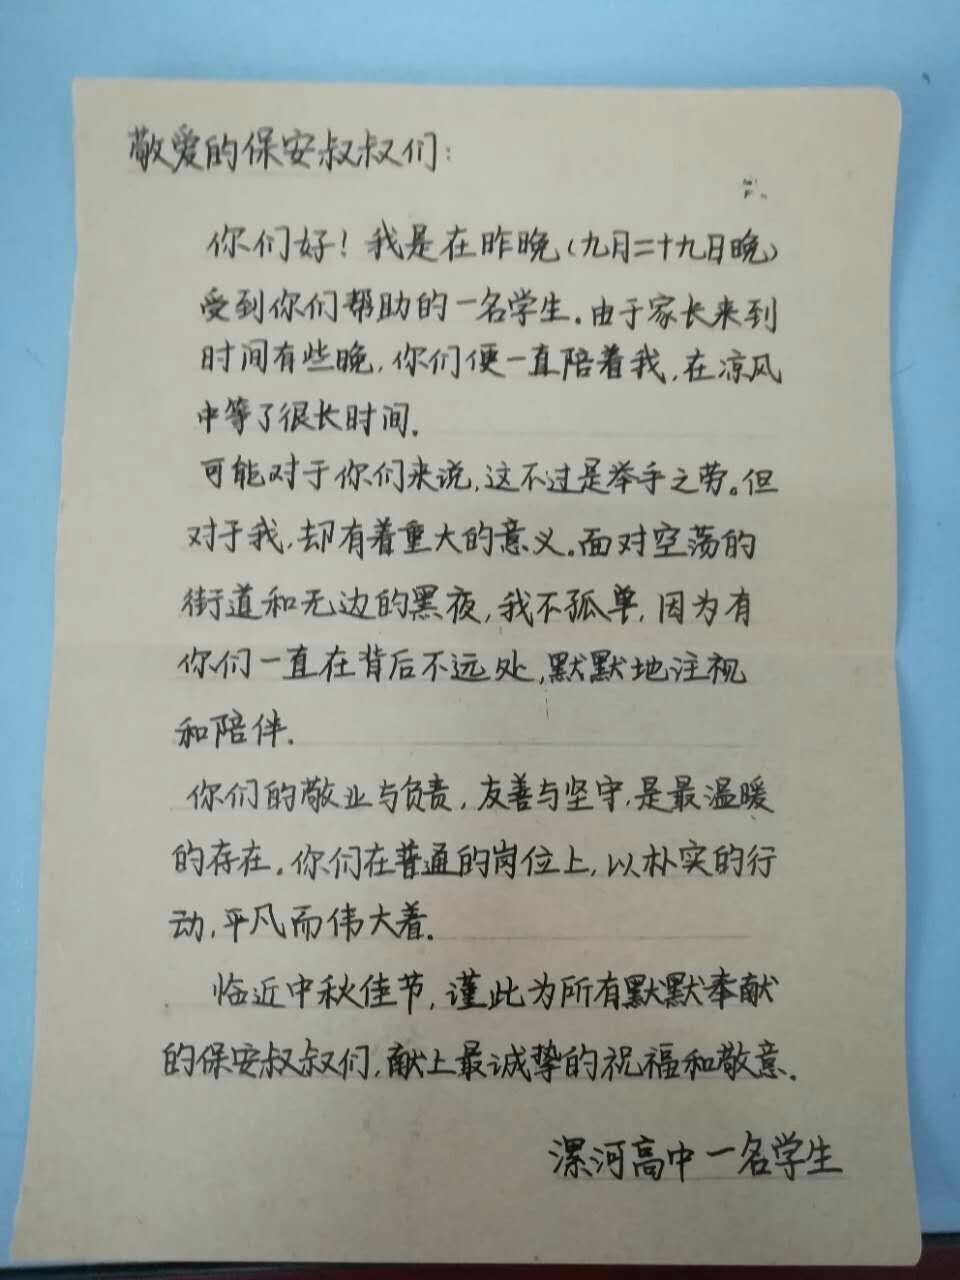 敬爱的保安叔叔们：
你们好！我是在昨晚（九月二十九日晚）
受到你们帮助的一名学生。由于家长来到
时间有些晚，你们便一直陪着我，在凉风
中等了很长时间。
可能对于你们来说，这不过是举手之劳。但
对于我，却有着重大的意义。面对空荡的
街道和无边的黑夜，我不孤单，因为有
你们一直在背后不远处，默默地注视
和陪伴。
你们的敬业与负责，友善与坚守，是最温暖
的存在。你们在普通的岗位上，以朴实的行
动，平凡而伟大着。
临近中秋佳节，谨此为所有默默奉献
的保安叔叔们，献上最诚挚的祝福和敬意。
漯河高中一名学生